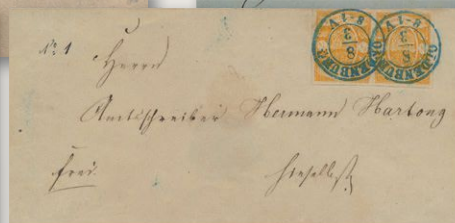 OLDENBURG 8/3 8-1 V.
OLDENBURG 8/3 8-1 V.
No 1
Herrn
Amtsschreiber Hermann Hartong
frei.
hieselbst